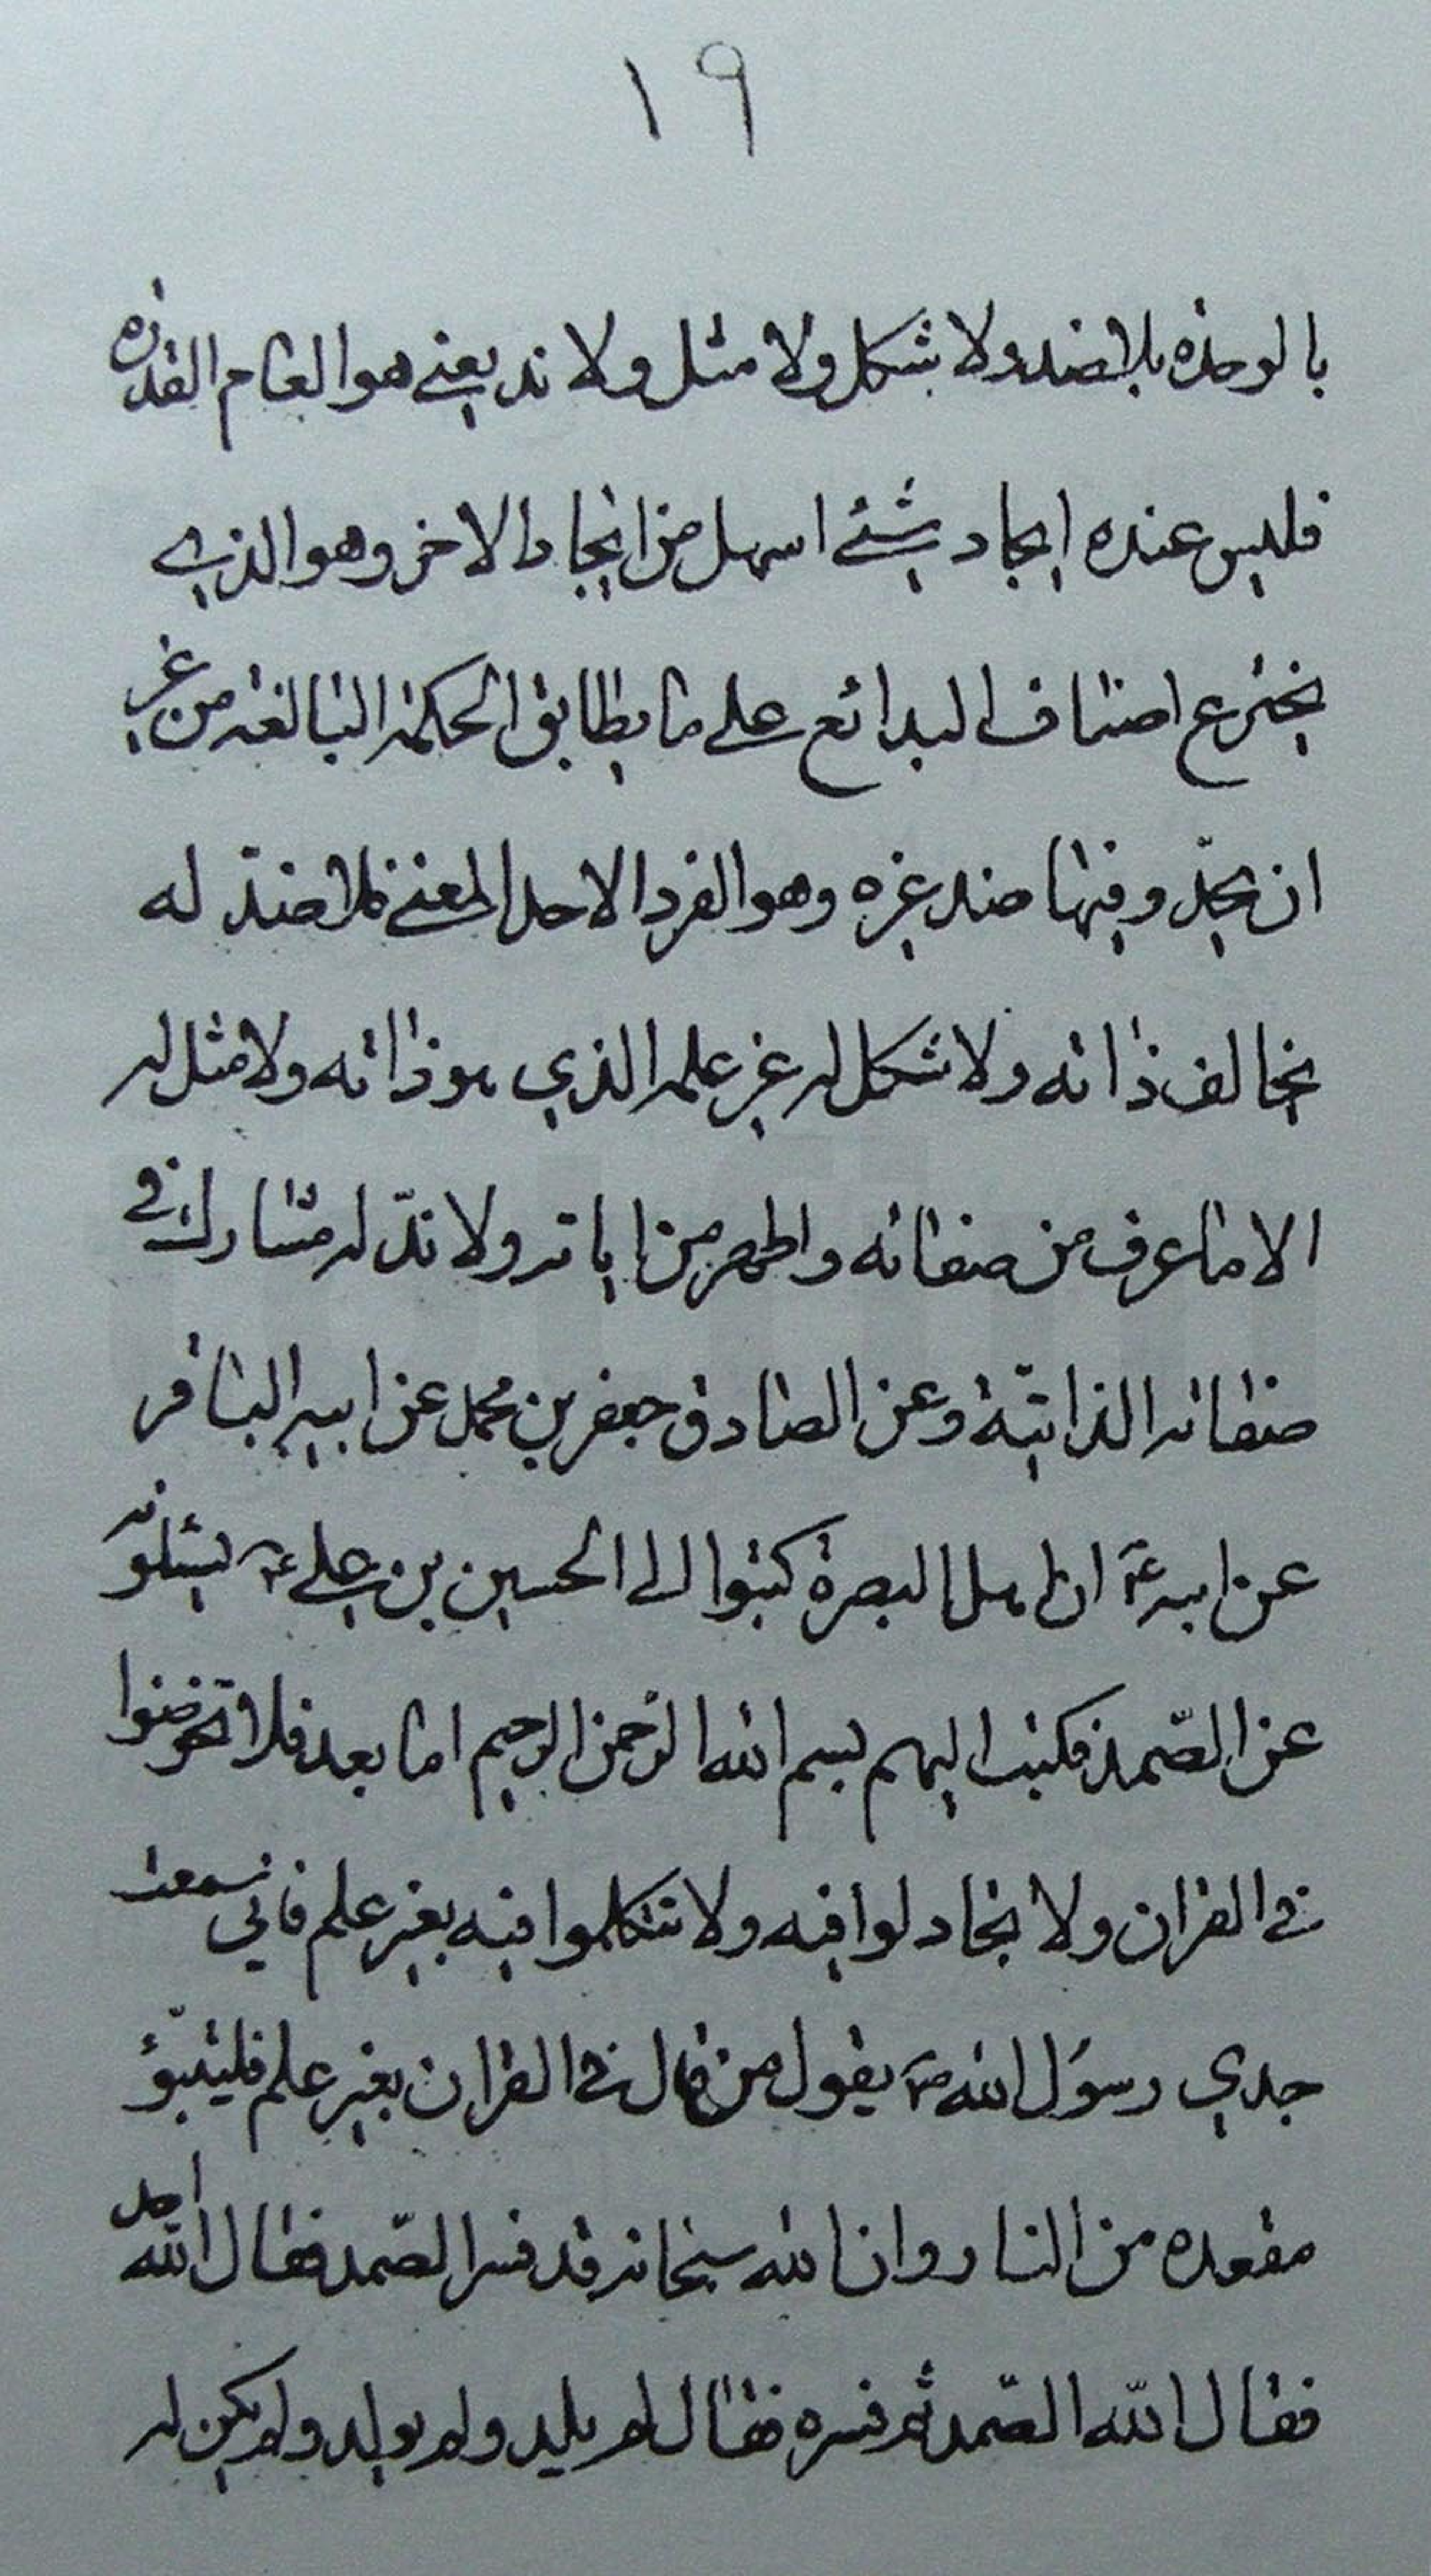 ١٩
بالوحدة بلا ضد ولا شكل ولا مثل ولا ند يعني هو العام القدرة
فليس عنده ايجاد شئ اسهل من ايجاد الاخر وهو الذي
يخترع اصناف البدائع على ما يطابق الحكمة البالغة من غير
ان يجد وفيها ضد غيره وهو الفرد الاحد المعنى فلا ضدّ له
يخالف ذاته ولا شكل له غير علمه الذي هو ذاته ولا مثل له
الا ما عرف من صفاته واظهر من اياته ولا ندّ له مشارك في
صفاته الذاتيّة وعن الصادق جعفر بن محمد عن ابيه الباقر
عن ابيه ع ان اهل البصرة كتبوا الى الحسين بن علي ع يسئلونه
عن الصّمد فكتب اليهم بسم الله الرحمن الرحيم اما بعد فلا تخوضوا
في القران ولا تجادلوا فيه ولا تتكلموا فيه بغير علم فاني سمعت
جدي رسول الله ص يقول من قال في القران بغير علم فليتبوّؤ
مقعده من النار وان الله سبحانه قد فسر الصّمد فقال الله احد
فقال الله الصّمد ثم فسره فقال لم يلد ولم يولد ولم يكن له